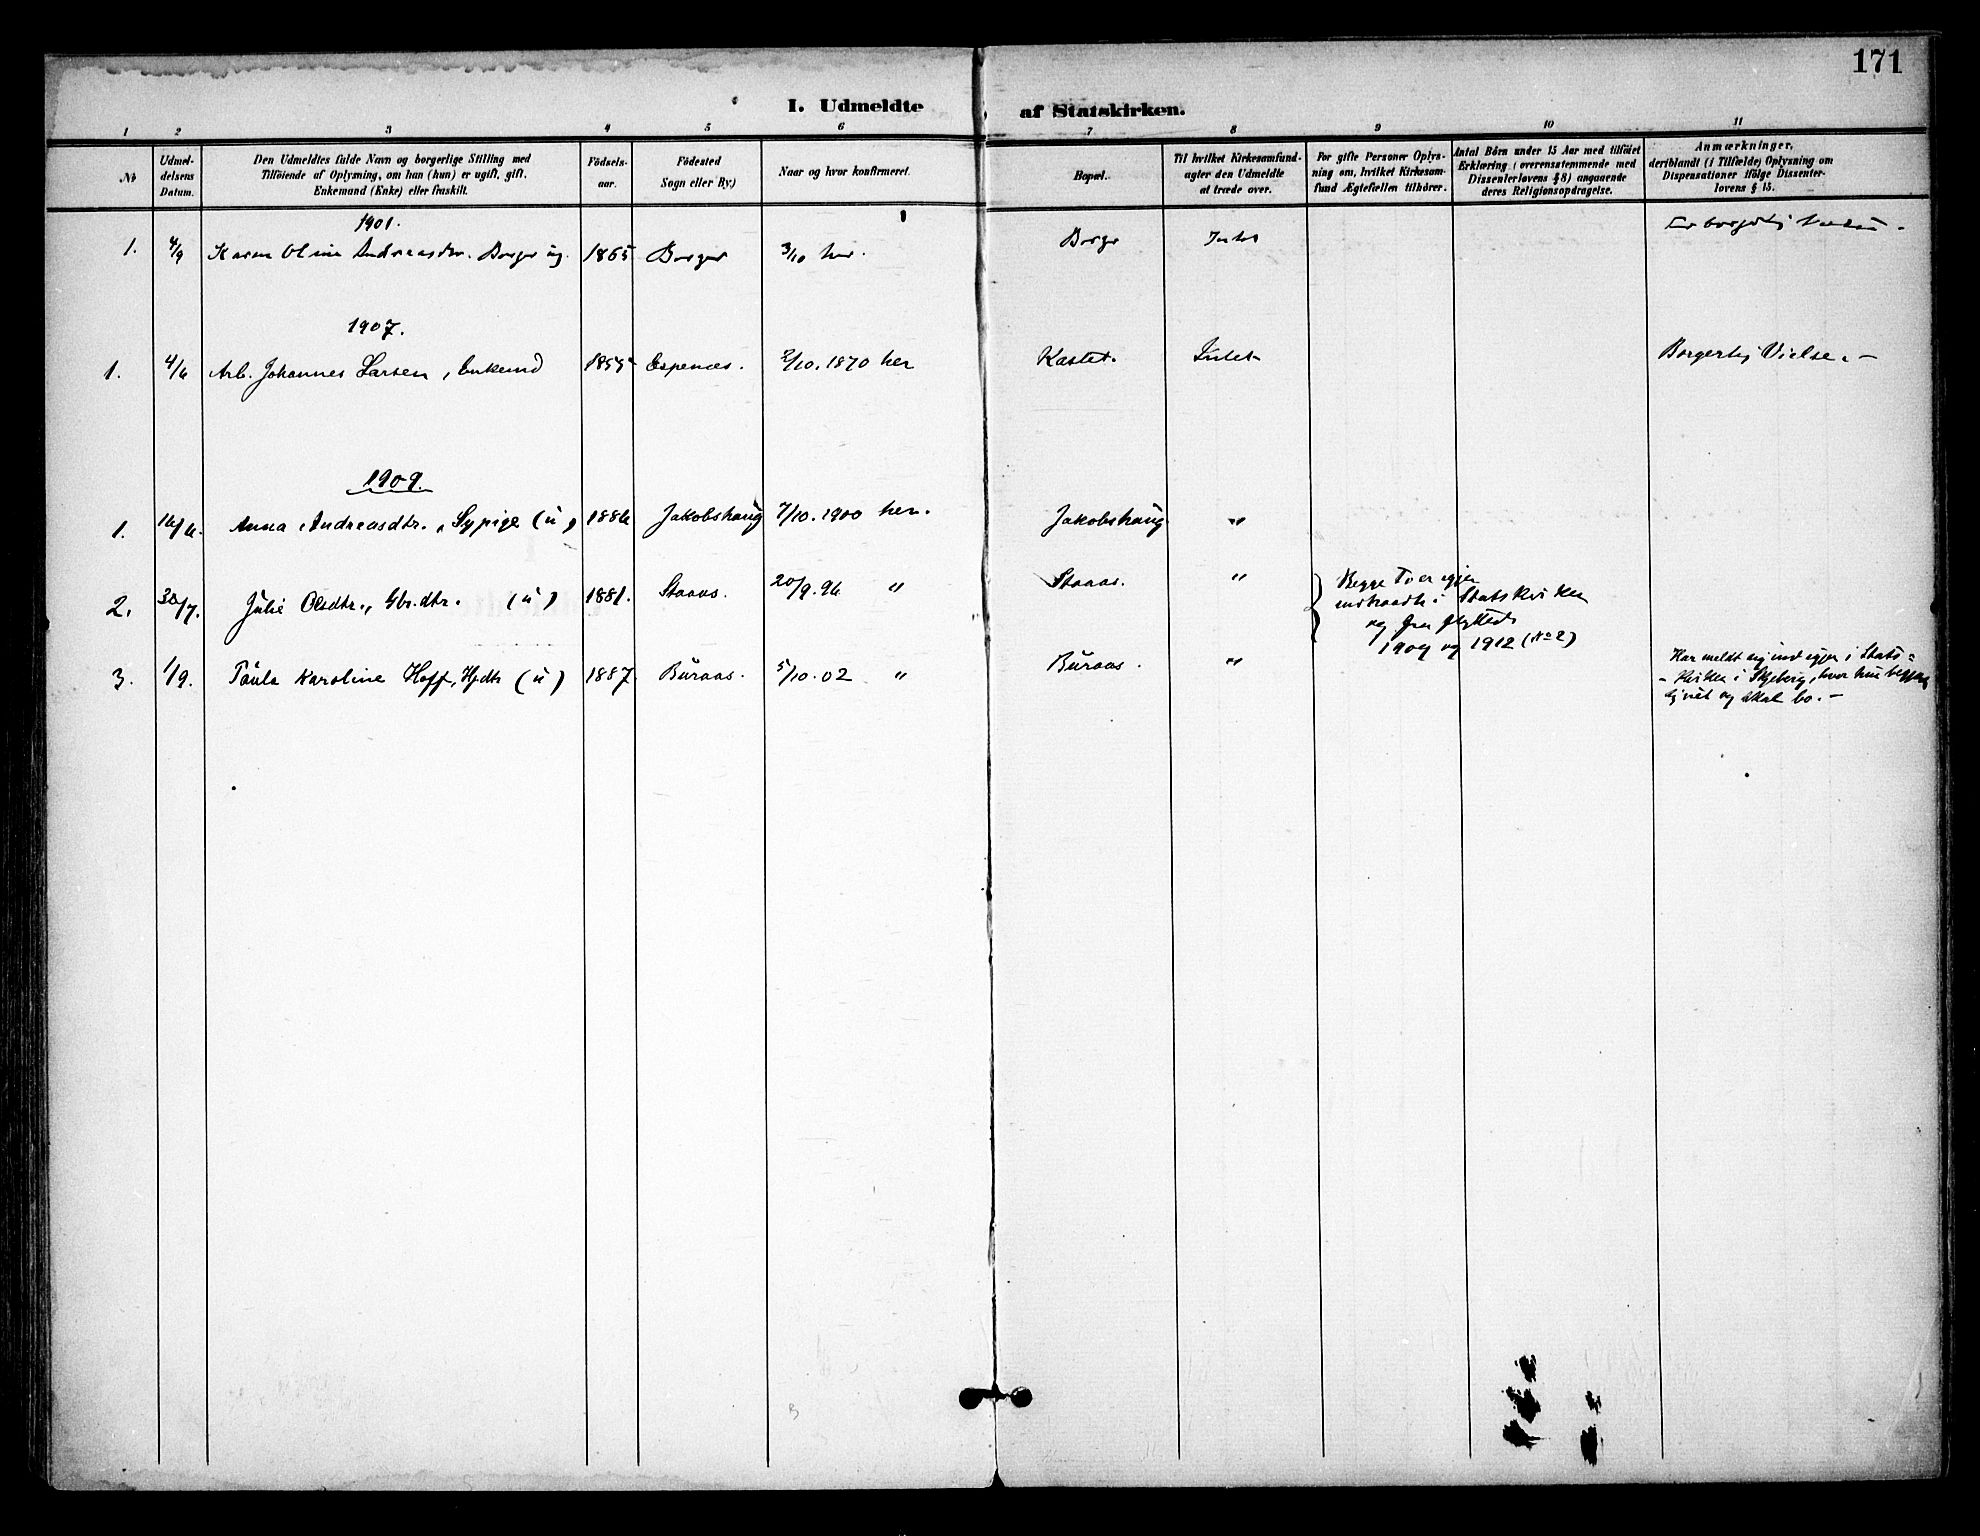 171
I. Udmeldte af Statskirken.
1 2 3 4 5 6 7 8 9 10 11
No
Udmel-
delsens
Datum.
Den Udmeldtes fulde Navn og borgerlige Stilling med
Tilföiende af Oplysning, om han (hun) er ugift, gift,
Enkemand (Enke) eller fraskilt.
Födsels-
aar.
Födested
Sogn eller By)
Naar og hvor konfirmeret.
Bopæl.
Til hvilket Kirkesamfund-
agter den Udmeldte
at træde over.
For gifte Personer Oplys-
ning om, hvilket Kirkesam-
fund Ægtefællen tilhører.
Antal Börn under 15 Aar med tilföiet
Erklæring (overensstemmende med
Dissenterlovens § 8) angaaende
deres Religionsopdragelse.
Anmærkninger,
deriblandt (i Tilfælde) Oplysning om
Dispensationer ifölge Dissenter-
lovens § 15.
1901.
1. 4/9 Karen Oline Andreasdtr. Borge ug. 1865 Borger 3/10 her. Borge Intet
1907.
1. 4/6 Arb. Johannes Larsen, Enkemd 1855 Espenæs. 2/10. 1870 her Kastet. Intet Borgerlig Vielse. -
1909.
1. 16/6. Anna Andreasdtr., Sypige (u) 1886 Jakobshaug 7/10. 1900 her. Jakobshaug "
2. 30/7. Julie Olsdtr., Gbr.dtr. (u) 1881. Staaas. 20/9. 96 " Staaas. "
Begge To er igjen
indtraadt i Statskirken
og fra flyttede
1909 og 1912 (No 2)
3. 1/9. Paula Karoline Hoff, Hjdtr (u) 1887. Buraas. 5/10. 02 " Buraas. "
Har meldt sig ind igjen i Stats=
- kirken i Skjeberg, hvor hun
og skal bo. -